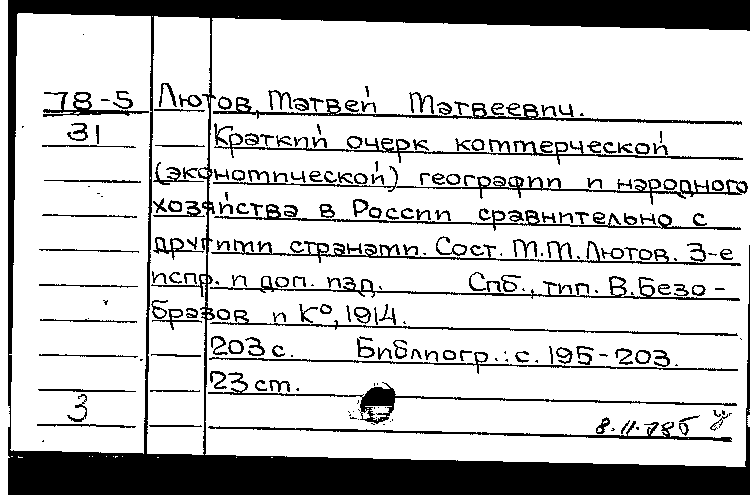 78-5 Лютов, Матвей Матвеевич.
31 Краткий очерк коммерческой
(экономической) географии и народного
хозяйства в России сравнительно с
другими странами. Сост. М.М. Лютов. 3-е
испр. и доп. изд. Спб., тип. В. Безо-
бразов и К°, 1914.
203 с. Библиогр.: с. 195-203.
23 см.
3
8.11.78б